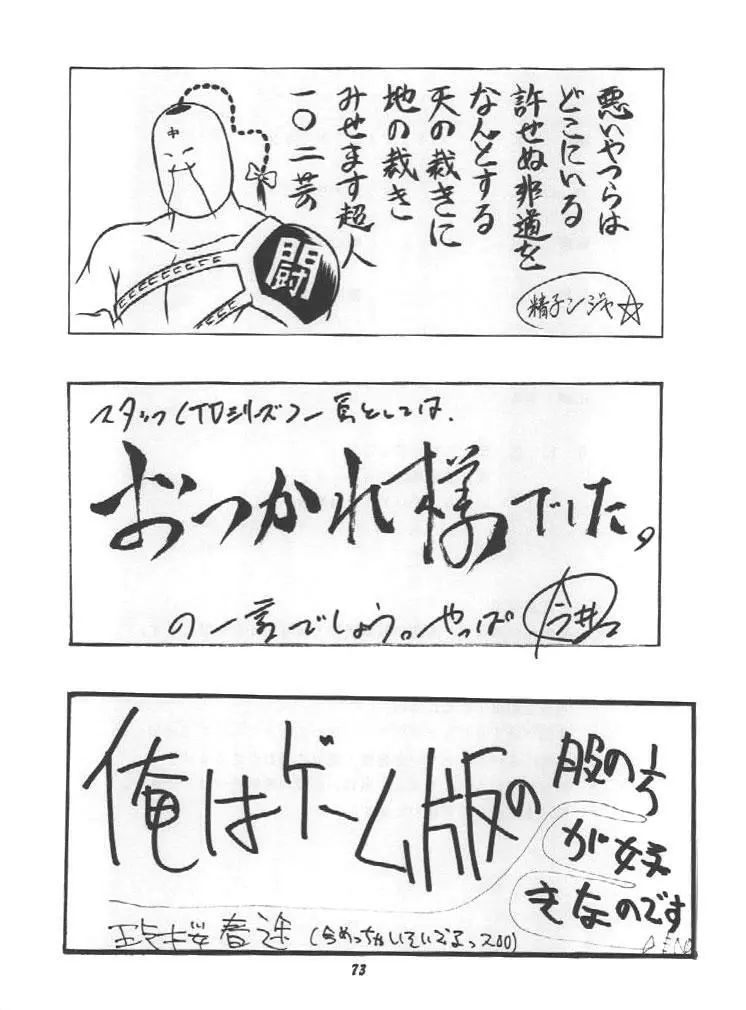 悪いやつらは
どこにいる
許せぬ非道を
なんとする
天の裁きに
地の裁き
みせます超人
一〇二芸
中
闘
精子ンジャ☆
スタッフ(TDシリーズ)一員としては、
おつかれ様でした。
の一言でしょう。やっぱ
今井
俺はゲーム版の
股の
が好
きなのです
桜春途(今めっちゃいそいでるっス00)
73